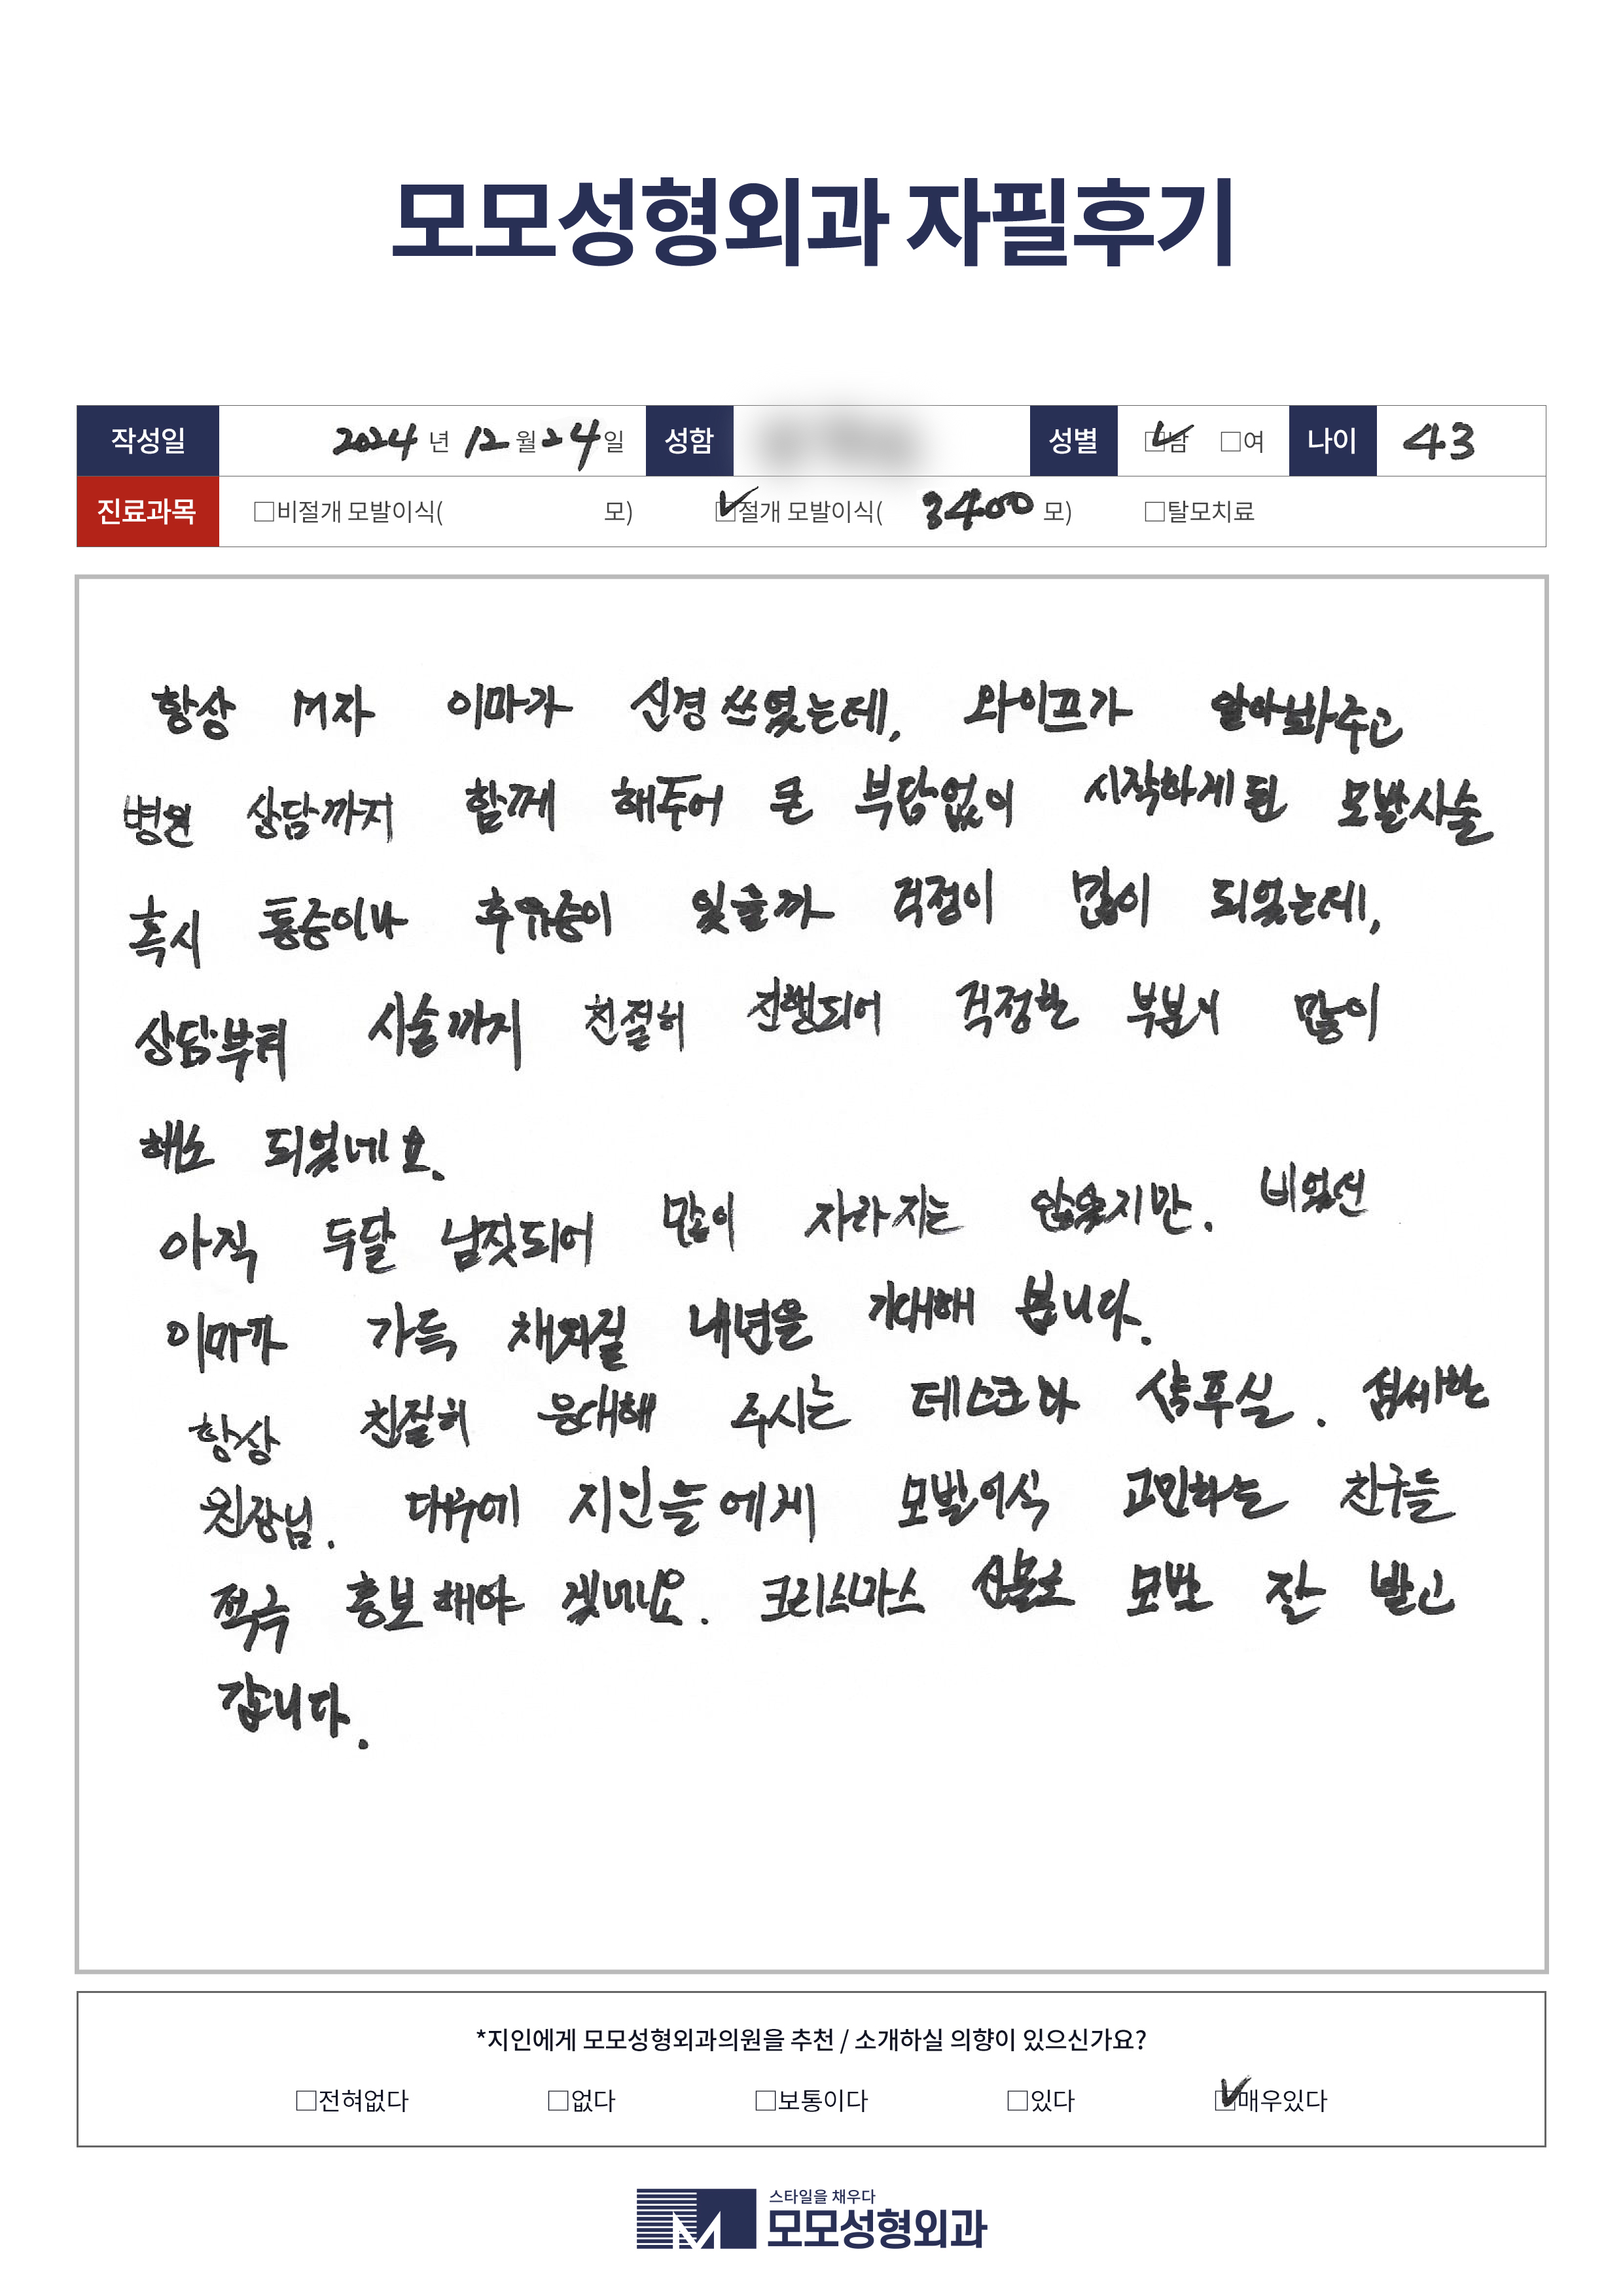 모모성형외과 자필후기
작성일 2024 년 12 월 24 일 성함 성별 ☑남 □여 나이 43
진료과목 □비절개 모발이식( 모) ☑절개 모발이식( 3400 모) □탈모치료
항상 M자 이마가 신경쓰였는데, 와이프가 알아봐주고
병원 상담까지 함께 해주어 큰 부담없이 시작하게된 모발시술
혹시 통증이나 후유증이 있을까 걱정이 많이 되었는데,
상담부터 시술까지 친절히 진행되어 걱정한 부분이 많이
해소 되었네요.
아직 두달 남짓되어 많이 자라지는 않았지만. 비었던
이마가 가득 채워질 내년을 기대해 봅니다.
항상 친절히 응대해 주시는 데스크와 샴푸실. 섬세한
원장님. 덕분에 지인들에게 모발이식 고민하는 친구들
적극 홍보해야 겠네요. 크리스마스 선물로 모발 잘 받고
갑니다.
*지인에게 모모성형외과의원을 추천 / 소개하실 의향이 있으신가요?
□전혀없다 □없다 □보통이다 □있다 ☑매우있다
스타일을 채우다
모모성형외과